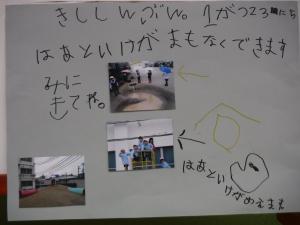 きししんぶん。1がつ23にち
はあといけがまもなくできます
みに
きてね。
はあと
いけがめえます